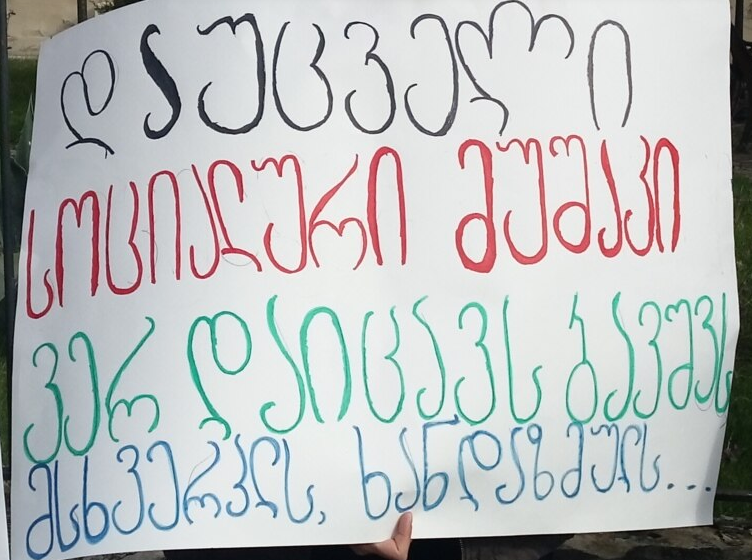 დაუცველი
სოციალური მუშაკი
ვერ დაიცავს ბავშვს
მსხვერპლს, ხანდაზმულს...